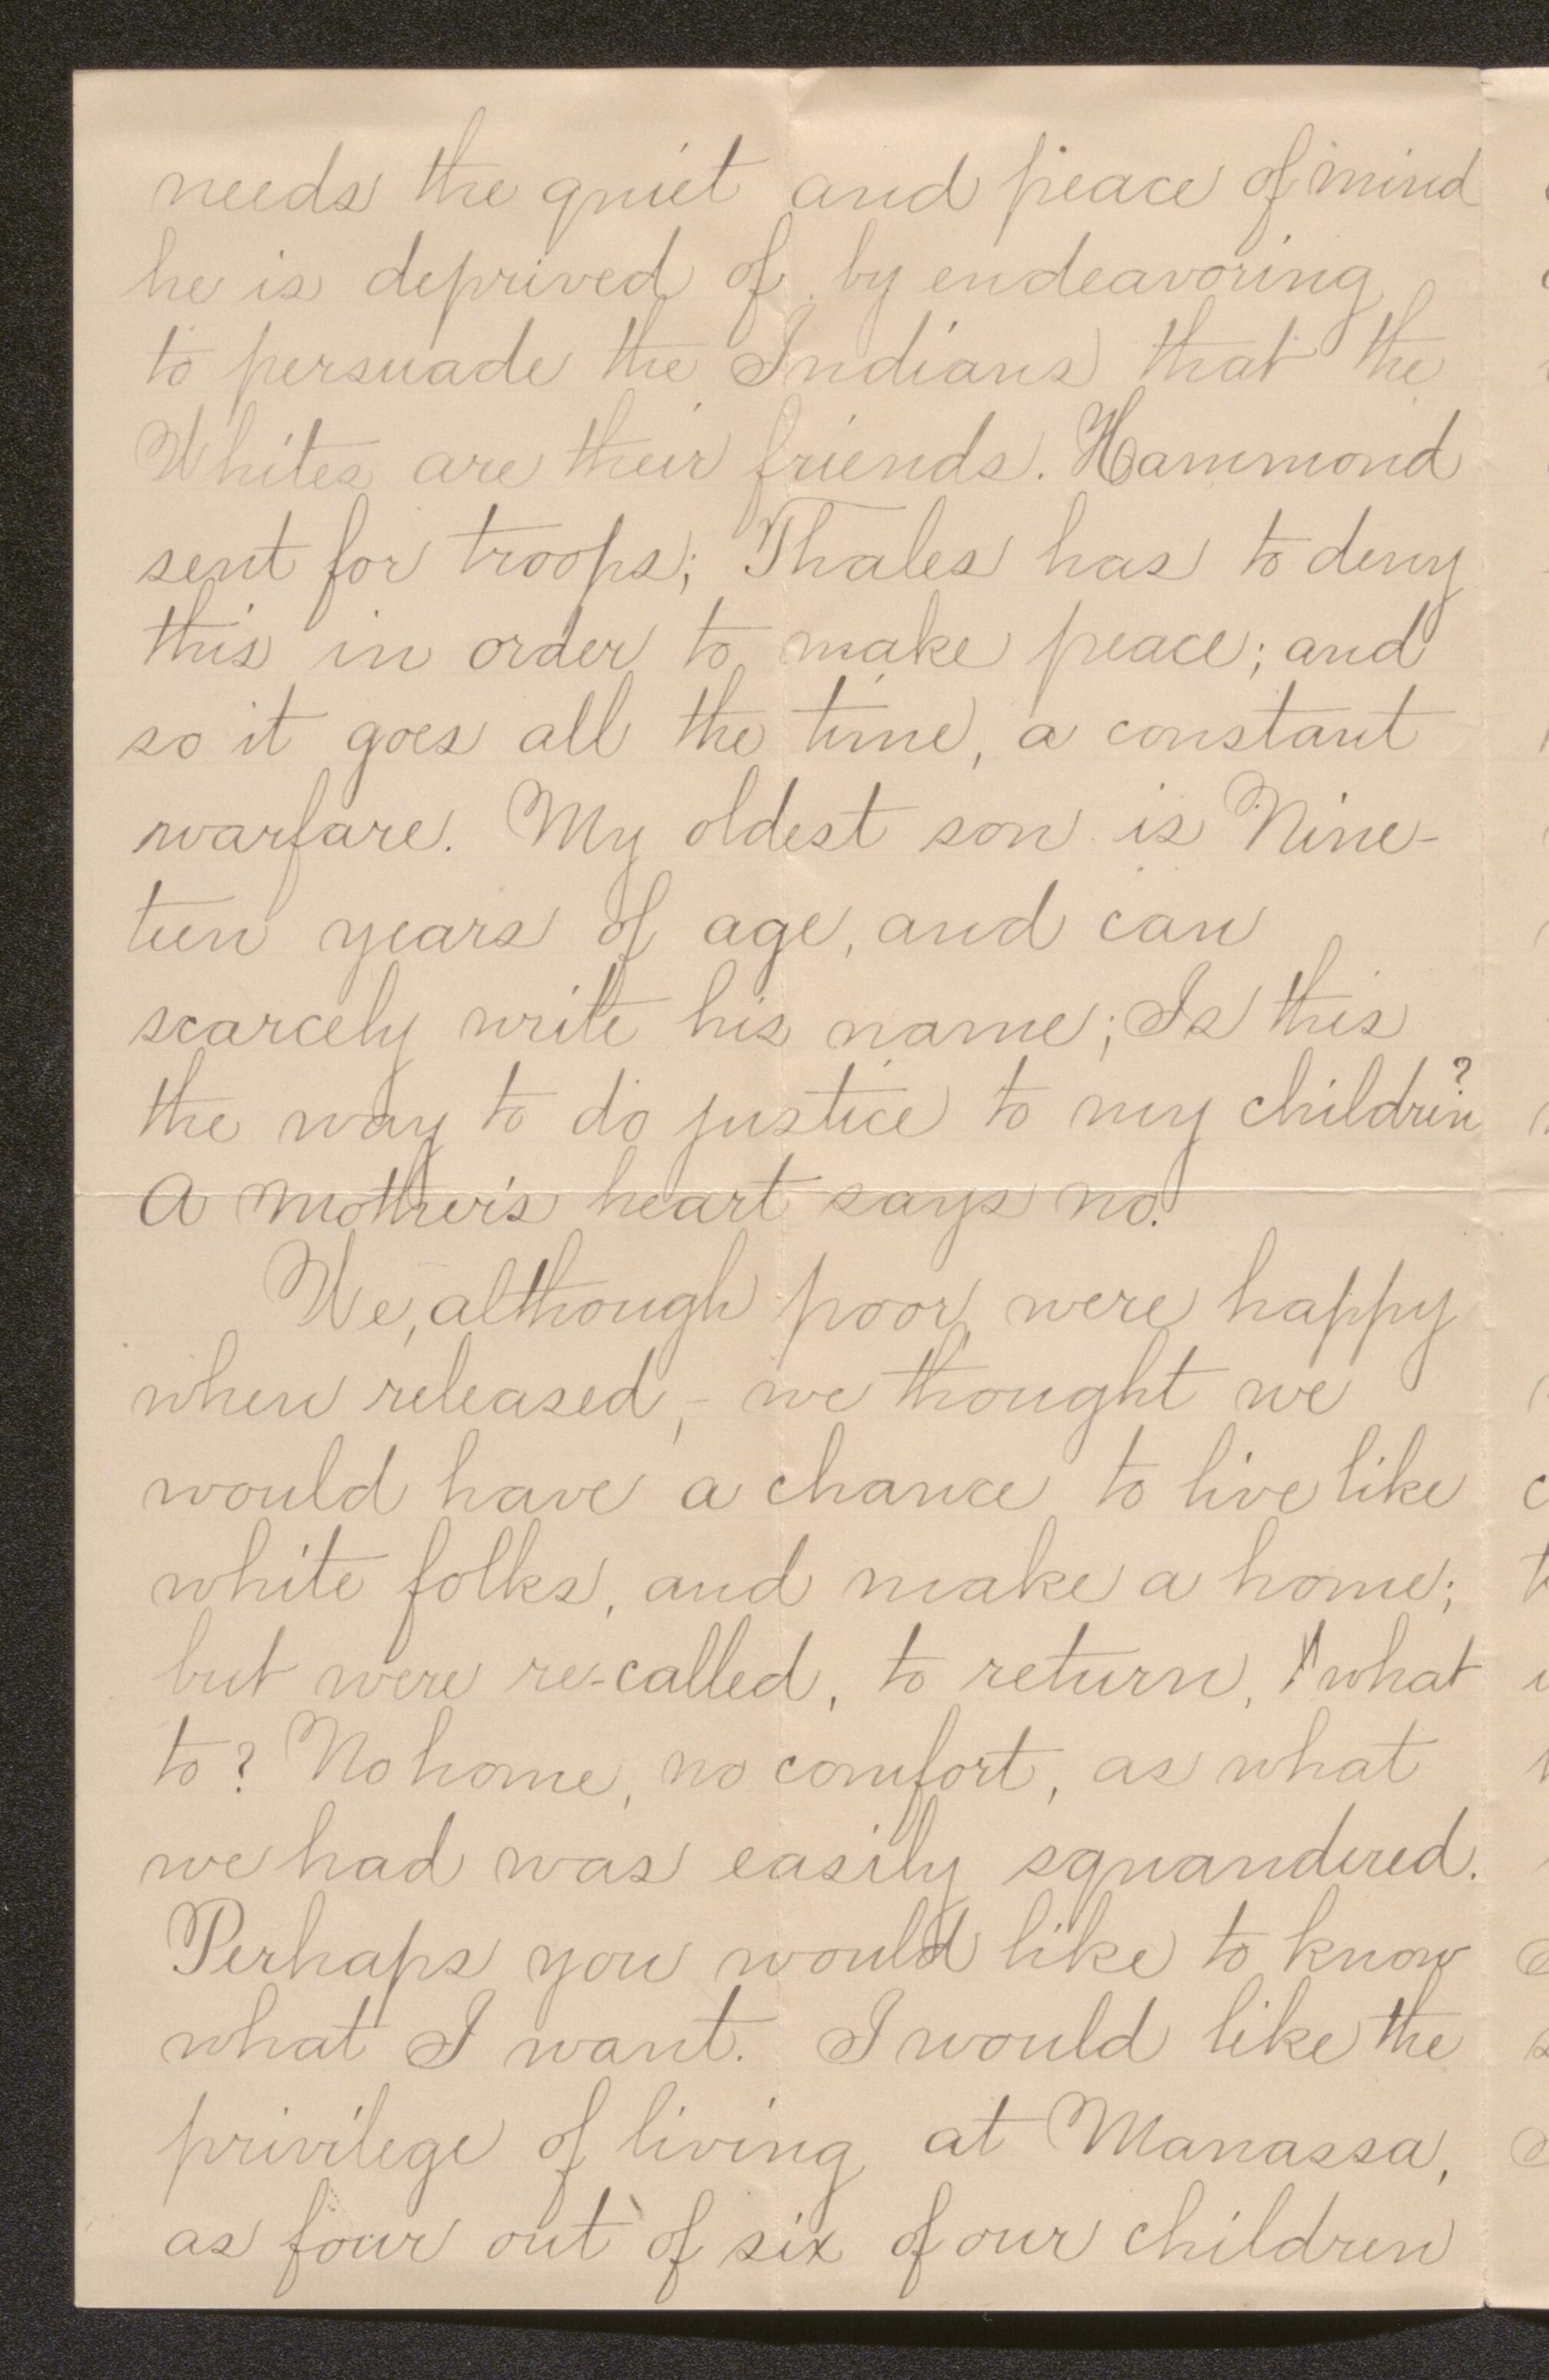 needs the quiet and peace of mind
he is deprived of, by endeavoring
to persuade the Indians that the
Whites are their friends. Hammond
sent for troops; Thales has to deny
this in order to make peace; and
so it goes all the time, a constant
warfare. My oldest son is Nine-
teen years of age, and can
scarcely write his name; Is this
the way to do justice to my children?
A Mother's heart says no.
We, although poor, were happy
when released, - we thought we
would have a chance to live like
white folks, and make a home;
but were re-called, to return, ! what
to? No home, no comfort, as what
we had was easily squandered.
Perhaps you would like to know
what I want. I would like the
privilege of living at Manassa,
as four out of six of our children